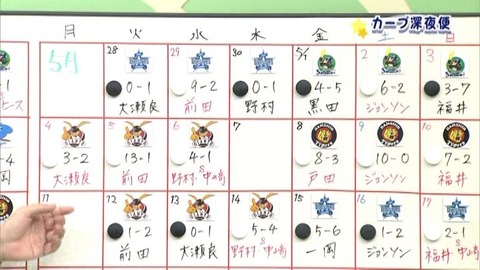 カープ深夜便
月 火 水 木 金 土 日
5月
28 29 30 5/1 2 3
0-1 9-2 0-1 4-5 6-2 3-7
大瀬良 前田 野村 黒田 ジョンソン 福井
4 5 6 7 8 9 10
3-2 13-1 4-1 8-3 10-0 7-2
大瀬良 前田 野村 S中崎 戸田 ジョンソン 福井
11 12 13 14 15 16 17
1-2 0-1 5-4 5-6 1-2 2-1
前田 大瀬良 野村 S中崎 一岡 ジョンソン 福井 S中崎